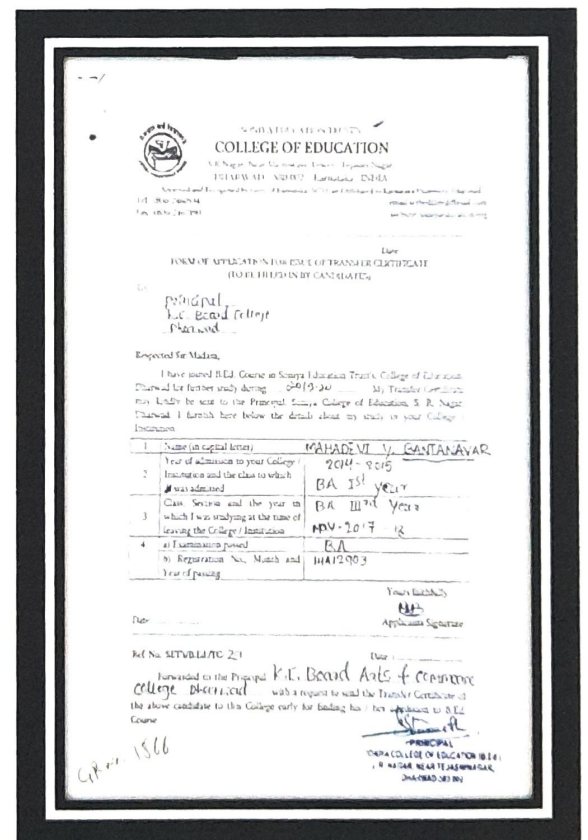 COLLEGE OF EDUCATION
DHARWAD Karnataka INDIA
Date
FORM OF APPLICATION FOR ISSUE OF TRANSFER CERTIFICATE
(TO BE FILLED IN BY CANDIDATES)
To,
principal
K.C. Board College
Dharwad
Respected Sir Madam,
I have joined B.Ed. Course in Soniya Education Trust's College of Education
Dharwad for further study during 2019-20 My Transfer Certificate
may kindly be sent to the Principal, Soniya College of Education, S. R. Nagar
Dharwad. I furnish here below the details about my study in your College
Institution
1 Name (in capital letter) MAHADEVI Y. GANTANAVAR
2 Year of admission to your College / Institution and the class to which was admitted 2014-2015 BA Ist year
3 Class, Section and the year in which I was studying at the time of leaving the College / Institution BA IIIrd Year NOV-2017-18
4 a) Examination passed BA
b) Registration No., Month and Year of passing 14A12903
Yours faithfully
Date
Applicants Signature
Ref No. SETCEB.Ed/TC Date
Forwarded to the Principal K.C. Board Arts & commerce
College Dharwad with a request to send the Transfer Certificate of
the above candidate to this College early for finding his / her admission to B.Ed
Course
PRINCIPAL
SONIYA COLLEGE OF EDUCATION (B.Ed)
S. R. NAGAR NEAR TEJASWINAGAR,
DHARWAD 580 002
GR no. 1566